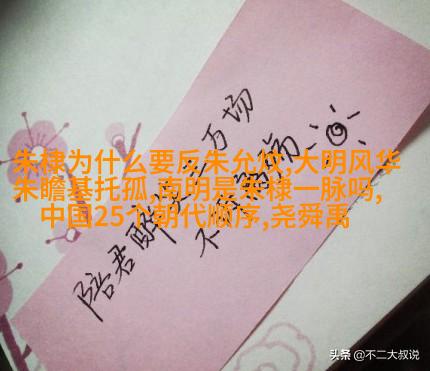 朱棣为什么要反朱允炆,大明风华
朱瞻基托孤,南明是朱棣一脉吗,
中国25个朝代顺序,尧舜禹
陪君醉笑三万场
不诉离殇
头条 @不二大叔说